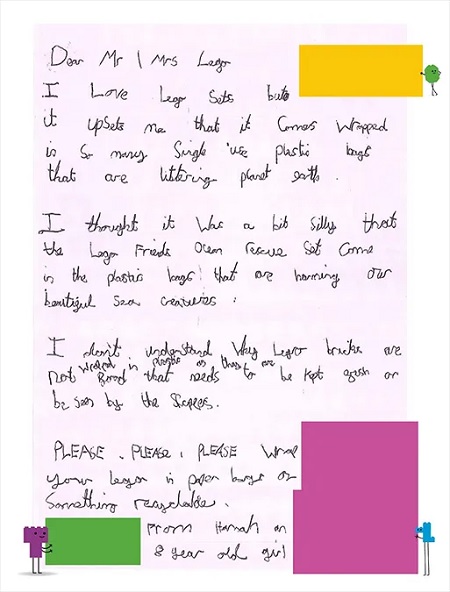 Dear Mr / Mrs Lego
I Love Lego Sets but
it upSets me that it Comes Wrapped
in So many Single use plastic bags
that are littering planet earth .
I thought it Was a bit Silly that
the Lego Friends Ocean rescue Set Came
in the plastic bags that are harming our
beautiful Sea creatures .
I don't understand Why Lego bricks are
Wrapped in plastic as these are
not food that needs to be kept fresh or
be Seen by the Shoppers.
PLEASE , PLEASE , PLEASE Wrap
your lego in paper bags or
Something recyclable .
From Hannah an
8 year old girl